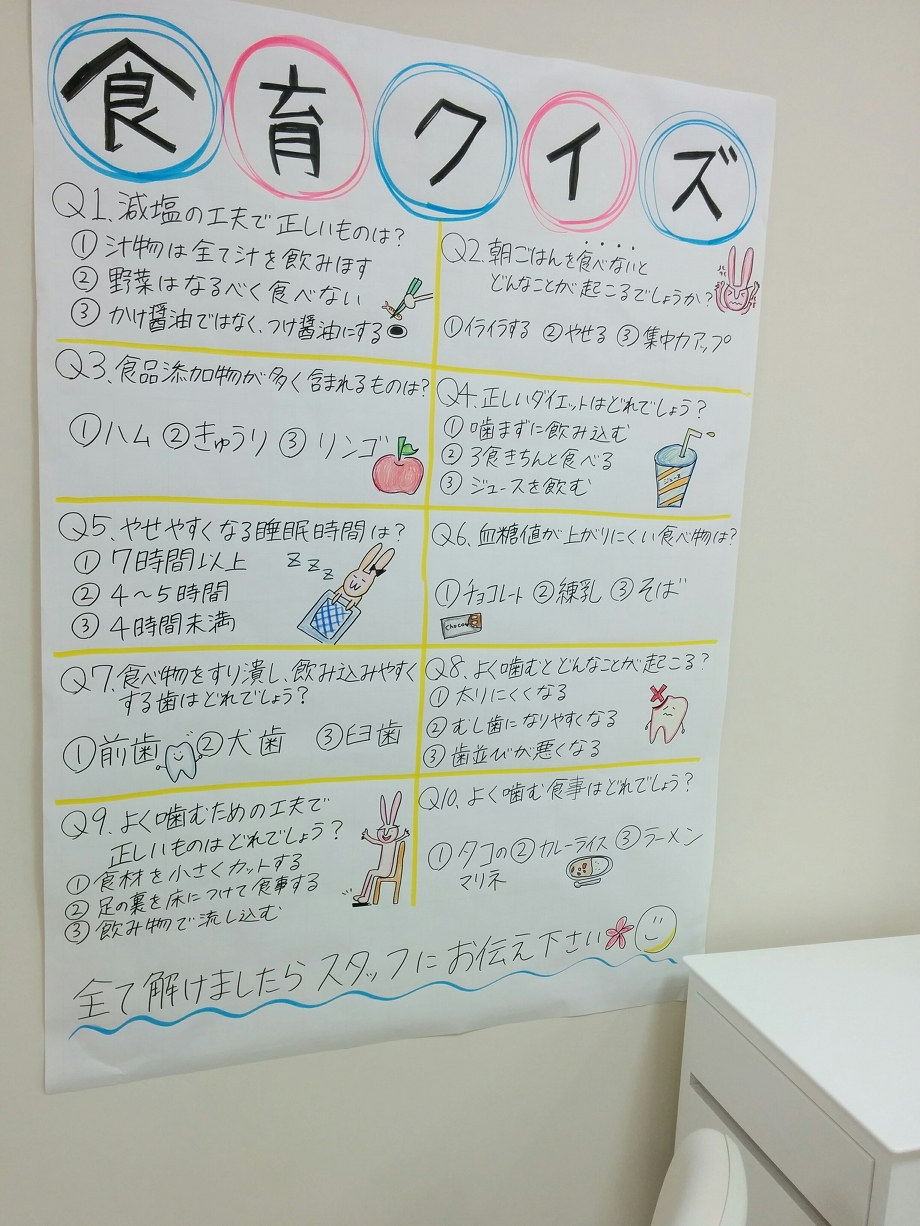 食育クイズ
Q1、減塩の工夫で正しいものは?
① 汁物は全て汁を飲みほす
② 野菜はなるべく食べない
③ かけ醤油ではなく、つけ醤油にする
Q2、朝ごはんを食べないと
どんなことが起こるでしょうか?
①イライラする ②やせる ③集中力アップ
Q3、食品添加物が多く含まれるものは?
①ハム ②きゅうり ③リンゴ
Q4、正しいダイエットはどれでしょう?
① 噛まずに飲み込む
② 3食きちんと食べる
③ ジュースを飲む
ジュース
Q5、やせやすくなる睡眠時間は?
① 7時間以上
② 4~5時間
③ 4時間未満
z z z
Q6、血糖値が上がりにくい食べ物は?
①チョコレート ②練乳 ③そば
choco
Q7、食べ物をすり潰し、飲み込みやすく
する歯はどれでしょう?
①前歯 ②犬歯 ③臼歯
Q8、よく噛むとどんなことが起こる?
① 太りにくくなる
② むし歯になりやすくなる
③ 歯並びが悪くなる
Q9、よく噛むための工夫で
正しいものはどれでしょう?
① 食材を小さくカットする
② 足の裏を床につけて食事する
③ 飲み物で流し込む
Q10、よく噛む食事はどれでしょう?
①タコの ②カレーライス ③ラーメン
マリネ
全て解けましたらスタッフにお伝え下さい